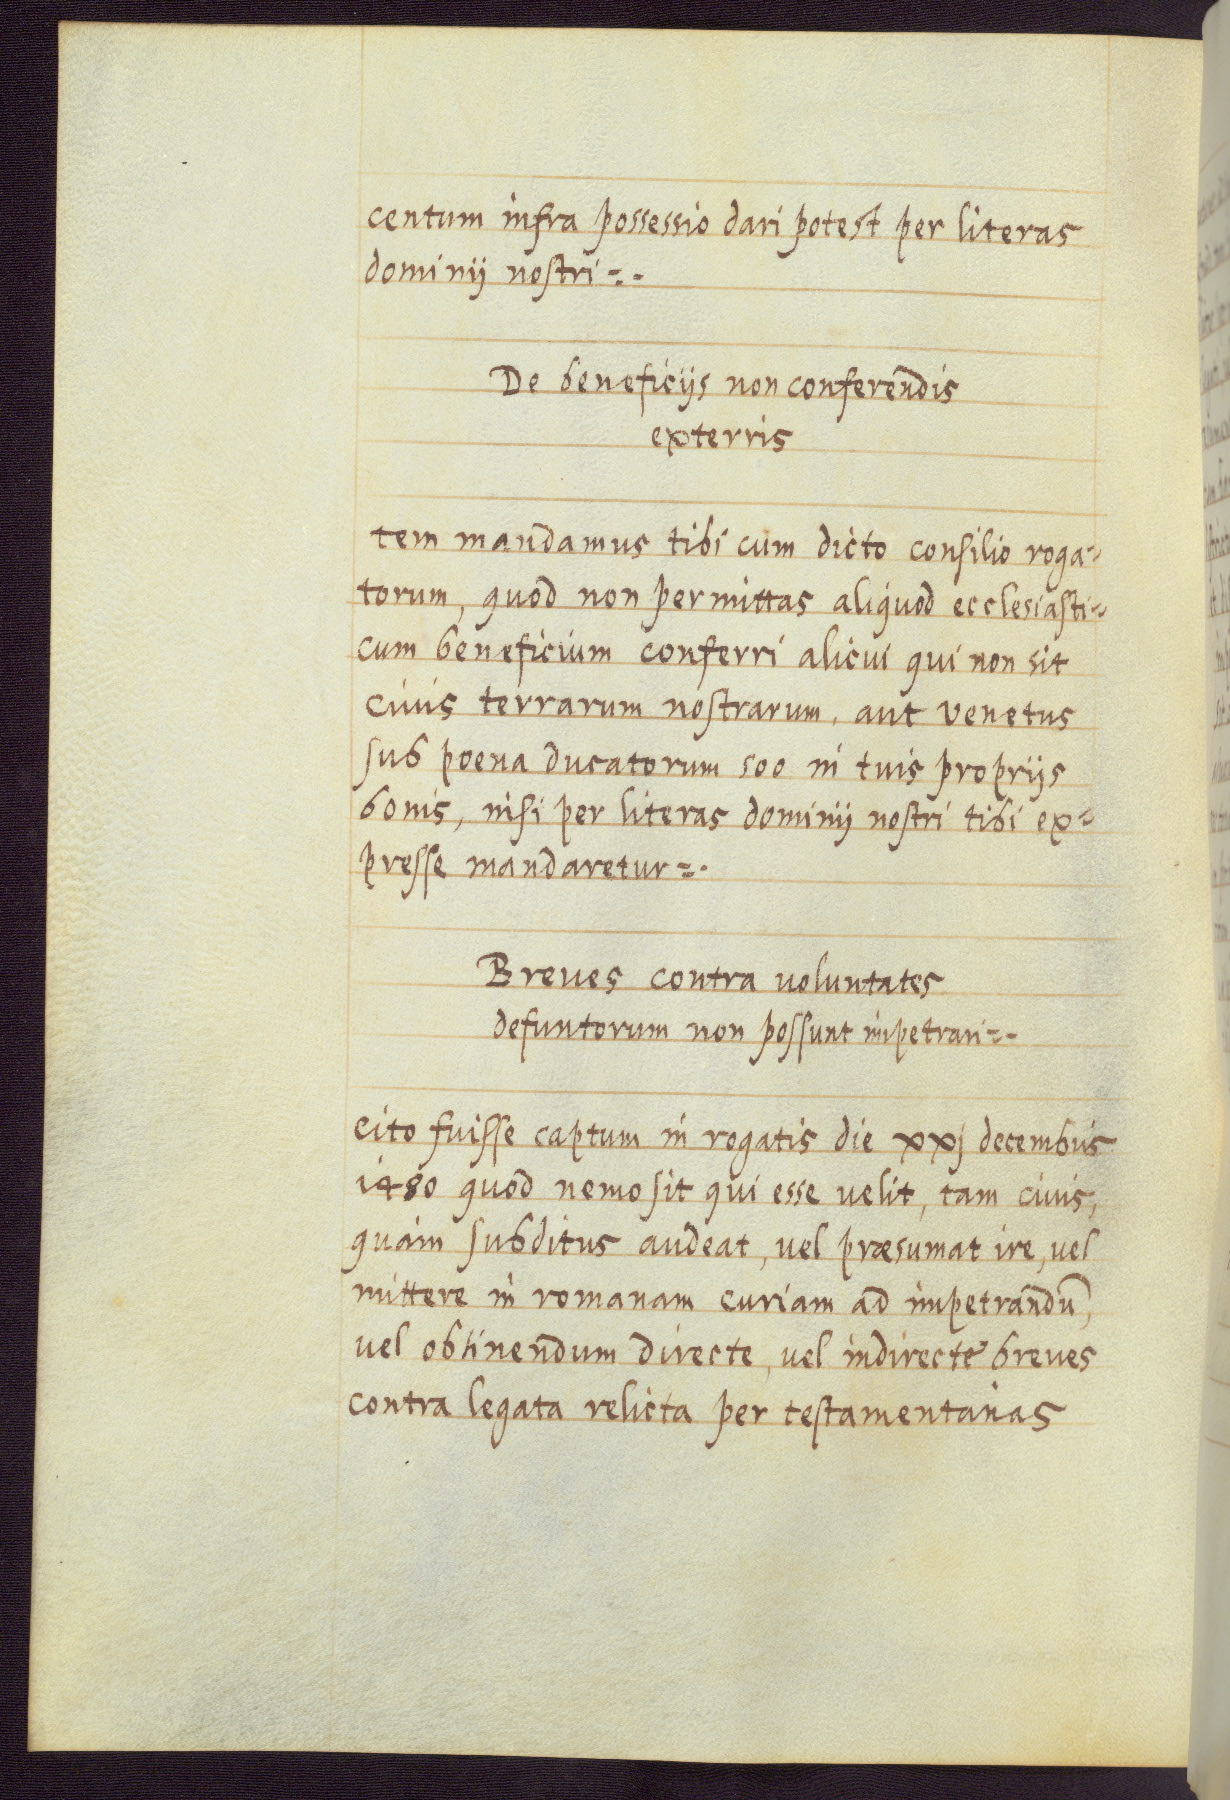 centum infra possessio dari potest per literas
dominij nostri =.-
De beneficijs non conferendis
exterris
tem mandamus tibi cum dicto consilio roga=
torum, quod non permittas aliquod ecclesiasti=
cum beneficium conferri alicui qui non sit
ciuis terrarum nostrarum, aut venetus
sub poena ducatorum 500 in tuis proprijs
bonis, nisi per literas dominij nostri tibi ex=
presse mandaretur =.
Breues contra uoluntates
defuntorum non possunt impetrari =.-
cito fuisse captum in rogatis die xxj decembris
1480 quod nemo sit qui esse uelit, tam ciuis,
quam subditus audeat, uel præsumat ire, uel
mittere in romanam curiam ad impetrandū,
uel obtinendum directe, uel indirecte breues
contra legata relicta per testamentarias